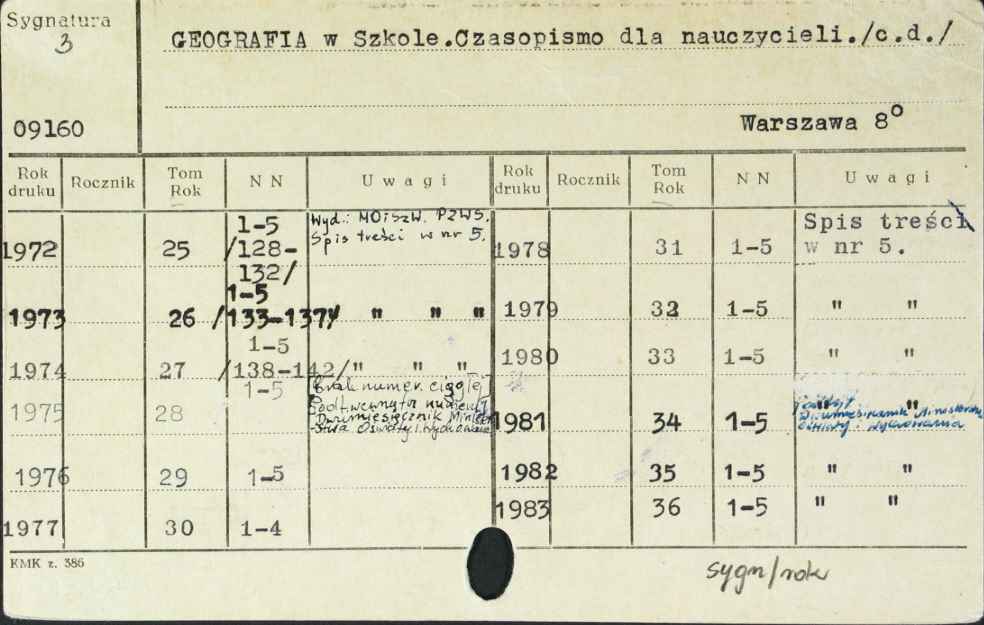 Sygnatura
3
GEOGRAFIA w Szkole.Czasopismo dla nauczycieli./c.d./
09160
Warszawa 8°
Rok druku Rocznik Tom Rok NN Uwagi Rok druku Rocznik Tom Rok NN Uwagi
1972 25 1-5 /128-132/ Wyd.: MOiSzW. PZWS. Spis treści w nr 5.
1973 26 1-5 /133-137/ " " "
1974 27 1-5 /138-142/ " " "
1975 28 1-5 Brak numer. ciągłej Dwumiesięcznik
1976 29 1-5
1977 30 1-4
1978 31 1-5 Spis treści w nr 5.
1979 32 1-5 " "
1980 33 1-5 " "
1981 34 1-5 " " Dwumiesięcznik Ministerstwa Oświaty i Wychowania
1982 35 1-5 " "
1983 36 1-5 " "
KMK z. 386
sygn/rok